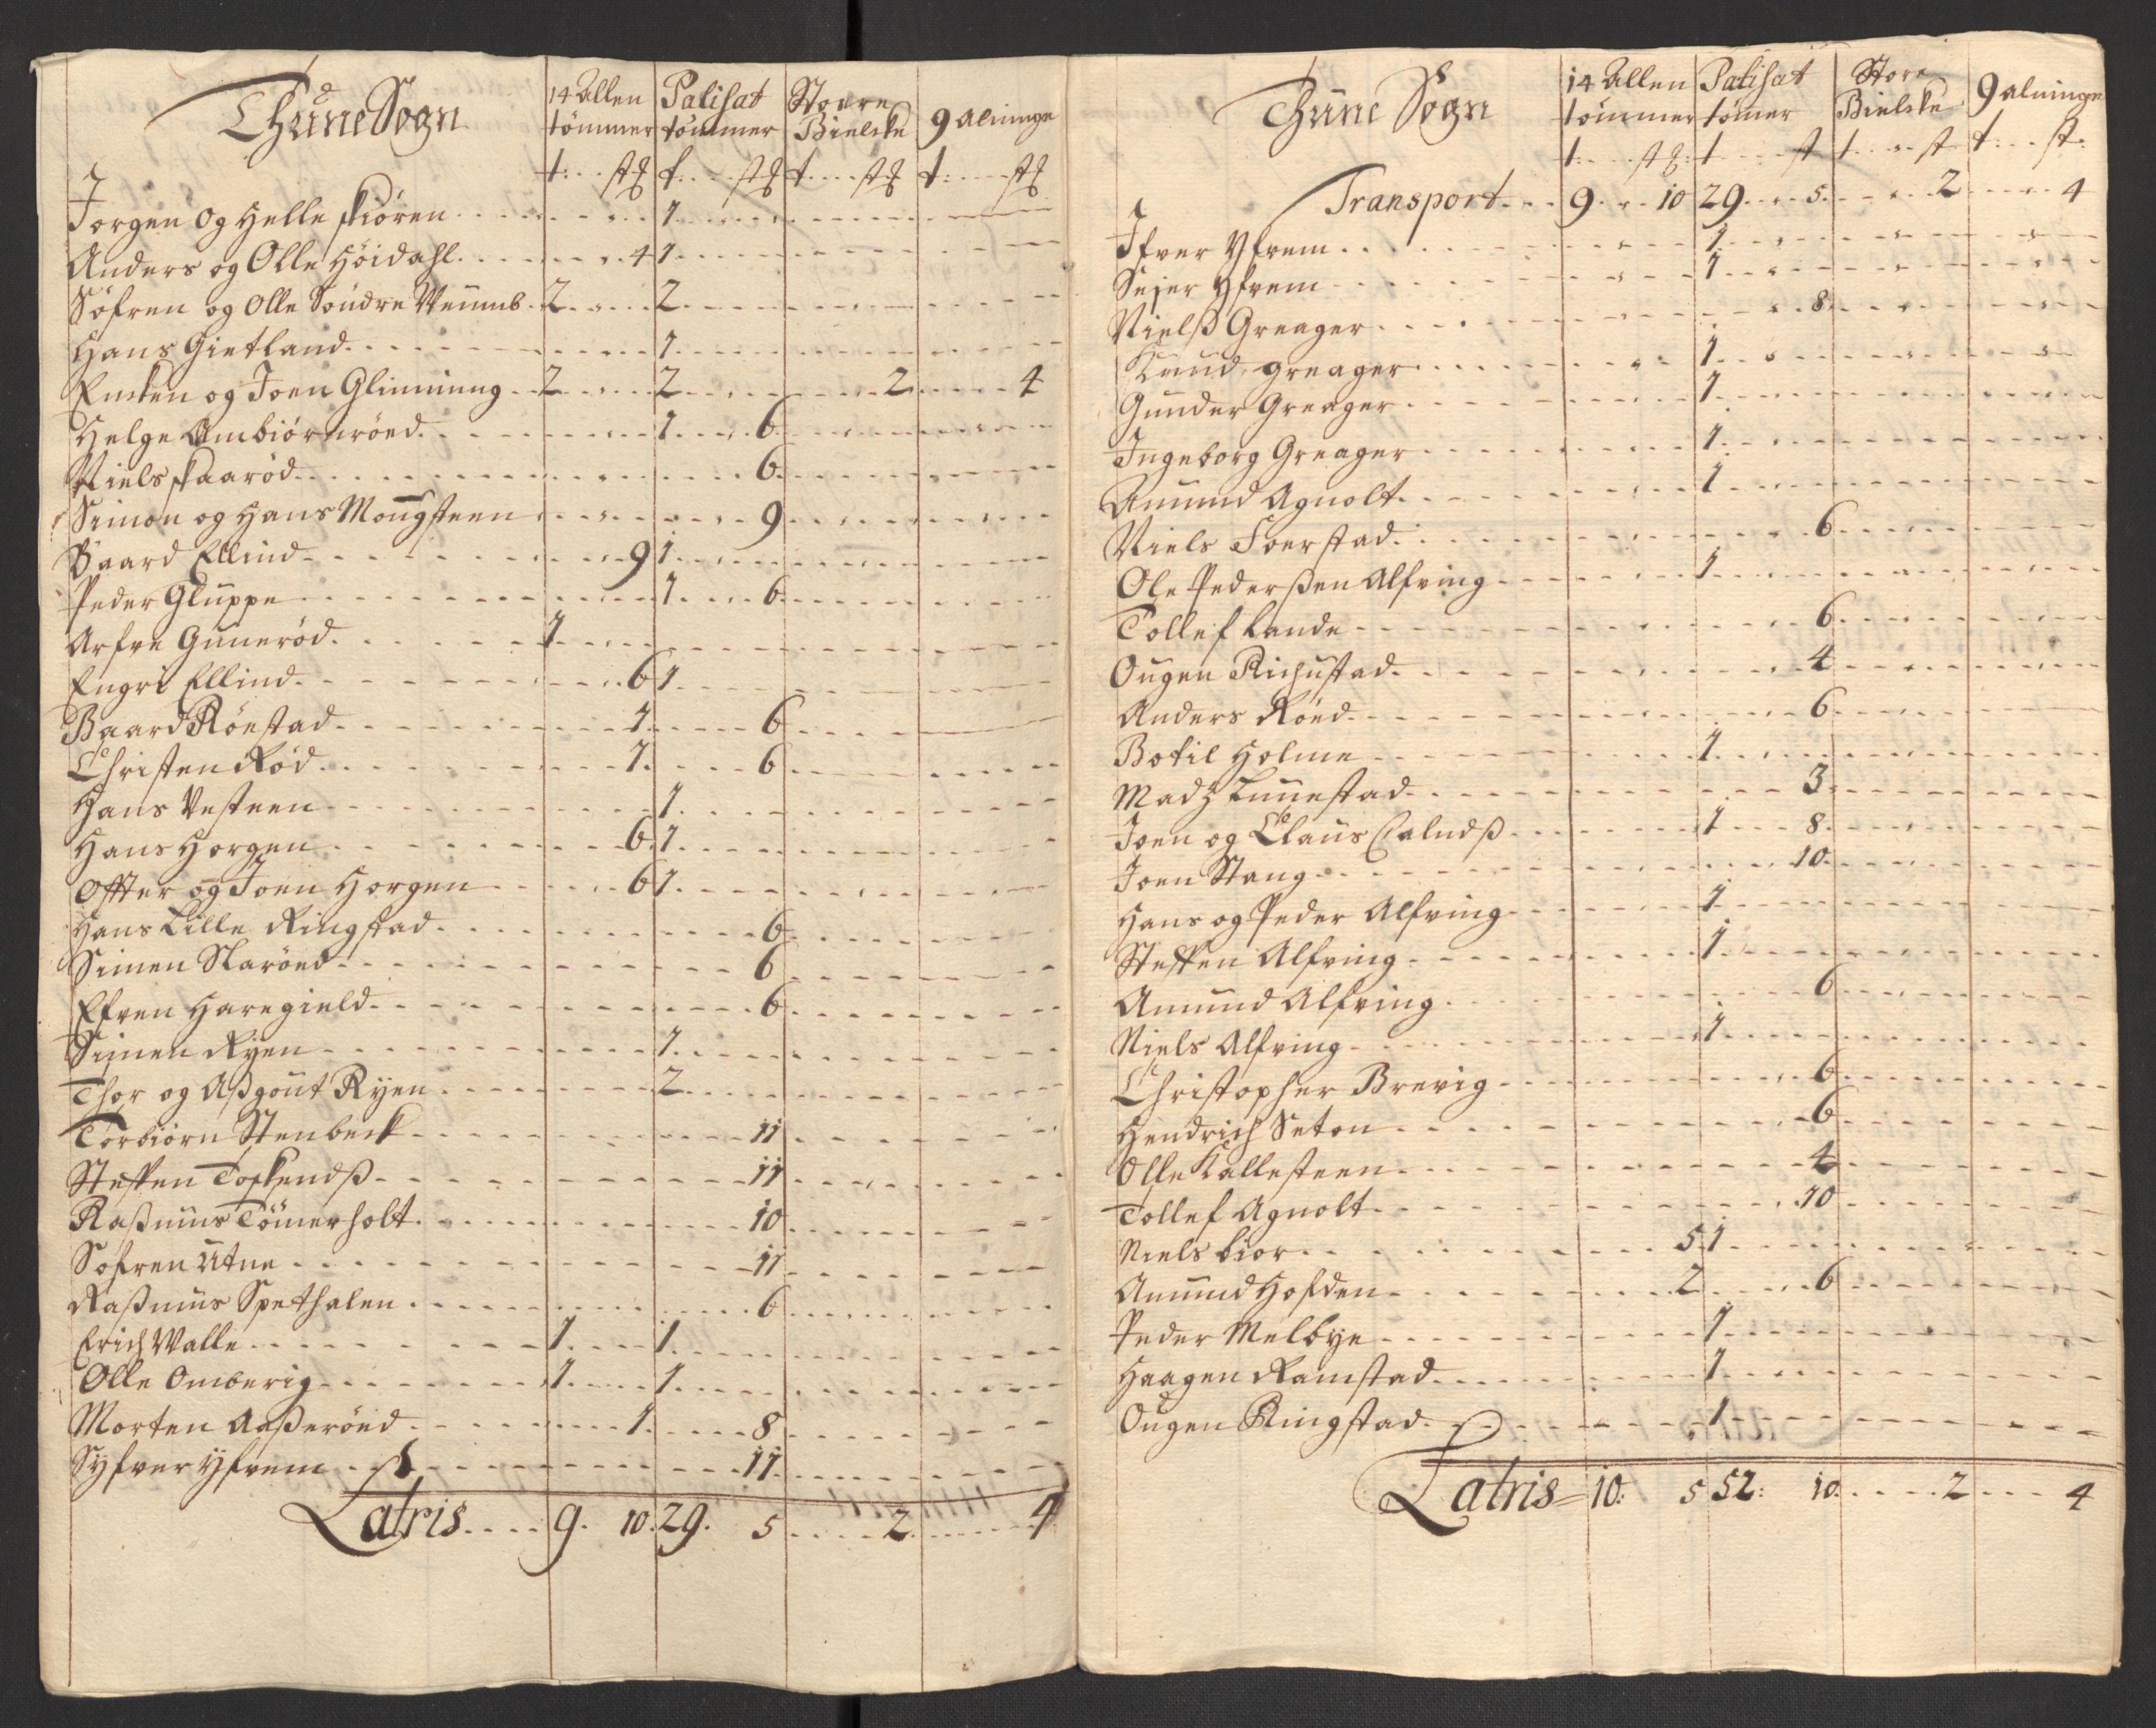 Thune Sogn
14 Allen tömmer | Palisat tömmer | Stoere Bielcke | 9 alninge
t: st | t: st | t: st | t: st
Jorgen og Helle skiören 1
Anders og Olle Höidahl 4 1
Söfren og Olle Söndre Weumb 2 2
Hans Gietland 1
Encken og Joen Glimming 2 2 2 4
Helge Ambiörnröed 1 6
Niels skaaröd 6
Simon og Hans Mougsteen 9
Baard Ellind 9 1
Peder Gluppe 1 6
Arfve Guneröd 1
Engri Ellind 6 1
Baard Röestad 1 6
Christen Röd 1 6
Hans Vesteen 1
Hans Horgen 6 1
Offter og Joen Horgen 6 1
Hans Lille Ringstad 6
Simen Slaröed 6
Efven Haregield 6
Simen Ryen 1
Thor og Aßgout Ryen 2
Torbiörn Stenbeck 11
Steffen 11
Raßmus Tömerholt 10
Söfren Utne 11
Raßmus Spethalen 6
Erich Walle 1 1
Olle Omberig 1 1
Morten Aaßeröed 1 8
Syfver Yfrem 11
Latris 9. 10. 29. 5 2 4
Thune Sogn
14 Allen tömmer | Palisat tömer | Store Bielcke | 9 alninge
t: st | t st | t st | t: st:
Transport 9 10 29 5 2 4
Ifver Yfrem 1
Sejer Yfrem 1
Nielß Greager 8
Knud greager 1
Gunder Greager 1
Ingeborg Greager 1
Amund Agnolt 1
Niels Soerstad 6
Ole Pederßen Alfving 1
Tollef Lande 6
Ougen Richustad 4
Anders Röed 6
Botil Holme 1
Madz Tunestad 3
Joen og Claus 1 8
Joen Stang 10
Hans og Peder Alfving 1
Steffen Alfving 1
Amund Alfving 6
Niels Alfving 1
Christopher Brevig 6
Hendrich Seton 6
Olle Kallesteen 4
Tollef Agnolt 10
Niels bior 5 1
Amund Hofden 2 6
Peder Melbye 1
Haagen Ramstad 1
Ougen Ringstad 1
Latris 10: 5 52: 10 2 4